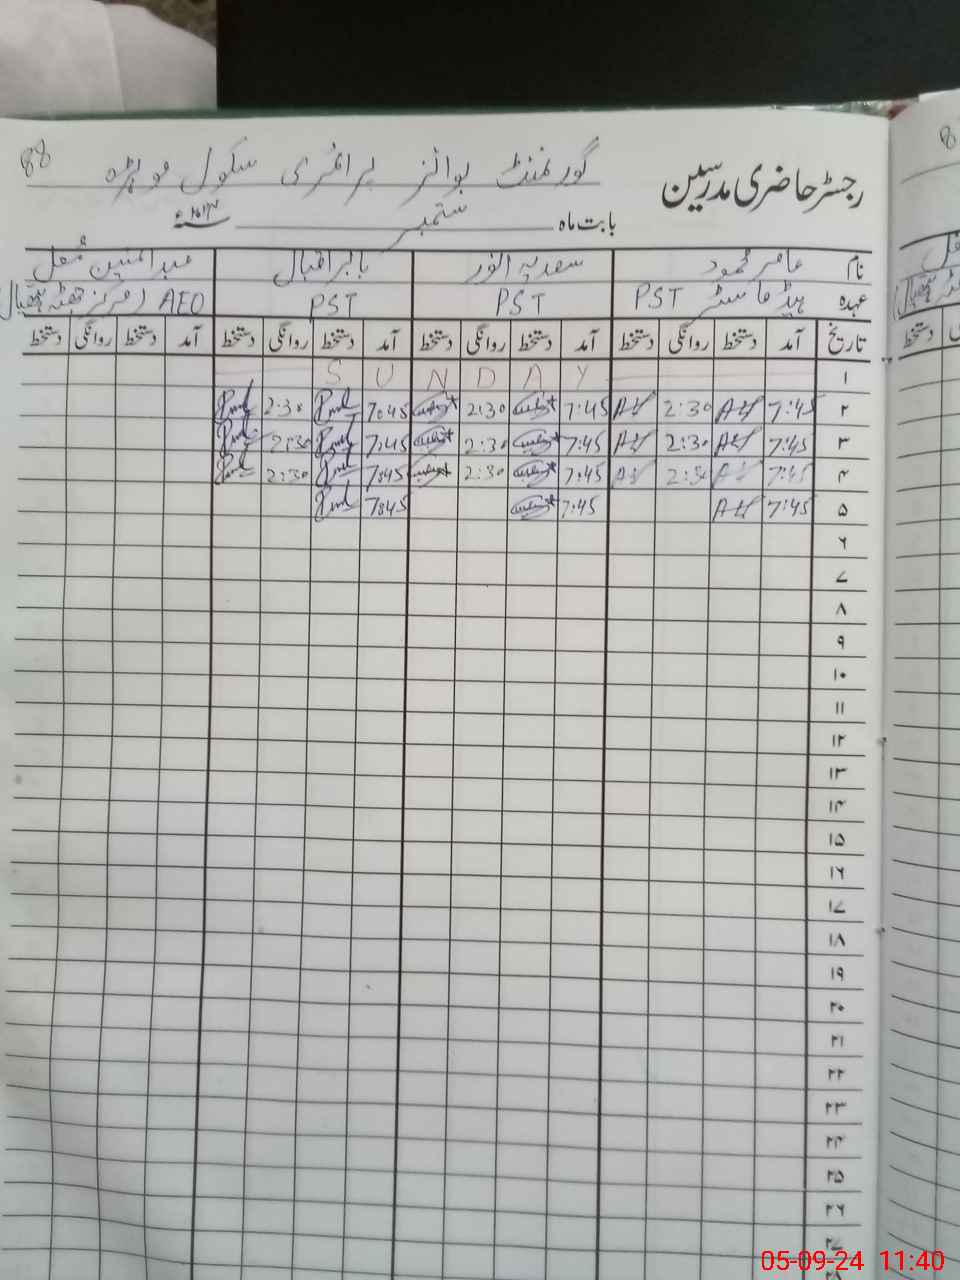 88
گورنمنٹ بوائز پرائمری سکول موہڑہ
رجسٹر حاضری مدرسین
بابت ماہ ستمبر
نام عامر محمود سعدیہ انور بابر اقبال عبدالمتین مغل
عہدہ ہیڈ ماسٹر PST PST PST AEO (مرکز
تاریخ آمد دستخط روانگی دستخط آمد دستخط روانگی دستخط آمد دستخط روانگی دستخط آمد دستخط روانگی دستخط
۱ SUNDAY
۲ 7:45 2:30 7:45 2:30 7:45 2:30
۳ 7:45 2:30 7:45 2:30 7:45 2:30
۴ 7:45 2:30 7:45 2:30 7:45 2:30
۵ 7:45 7:45 7:45
۶
۷
۸
۹
۱۰
۱۱
۱۲
۱۳
۱۴
۱۵
۱۶
۱۷
۱۸
۱۹
۲۰
۲۱
۲۲
۲۳
۲۴
۲۵
۲۶
۲۷
05-09-24 11:40